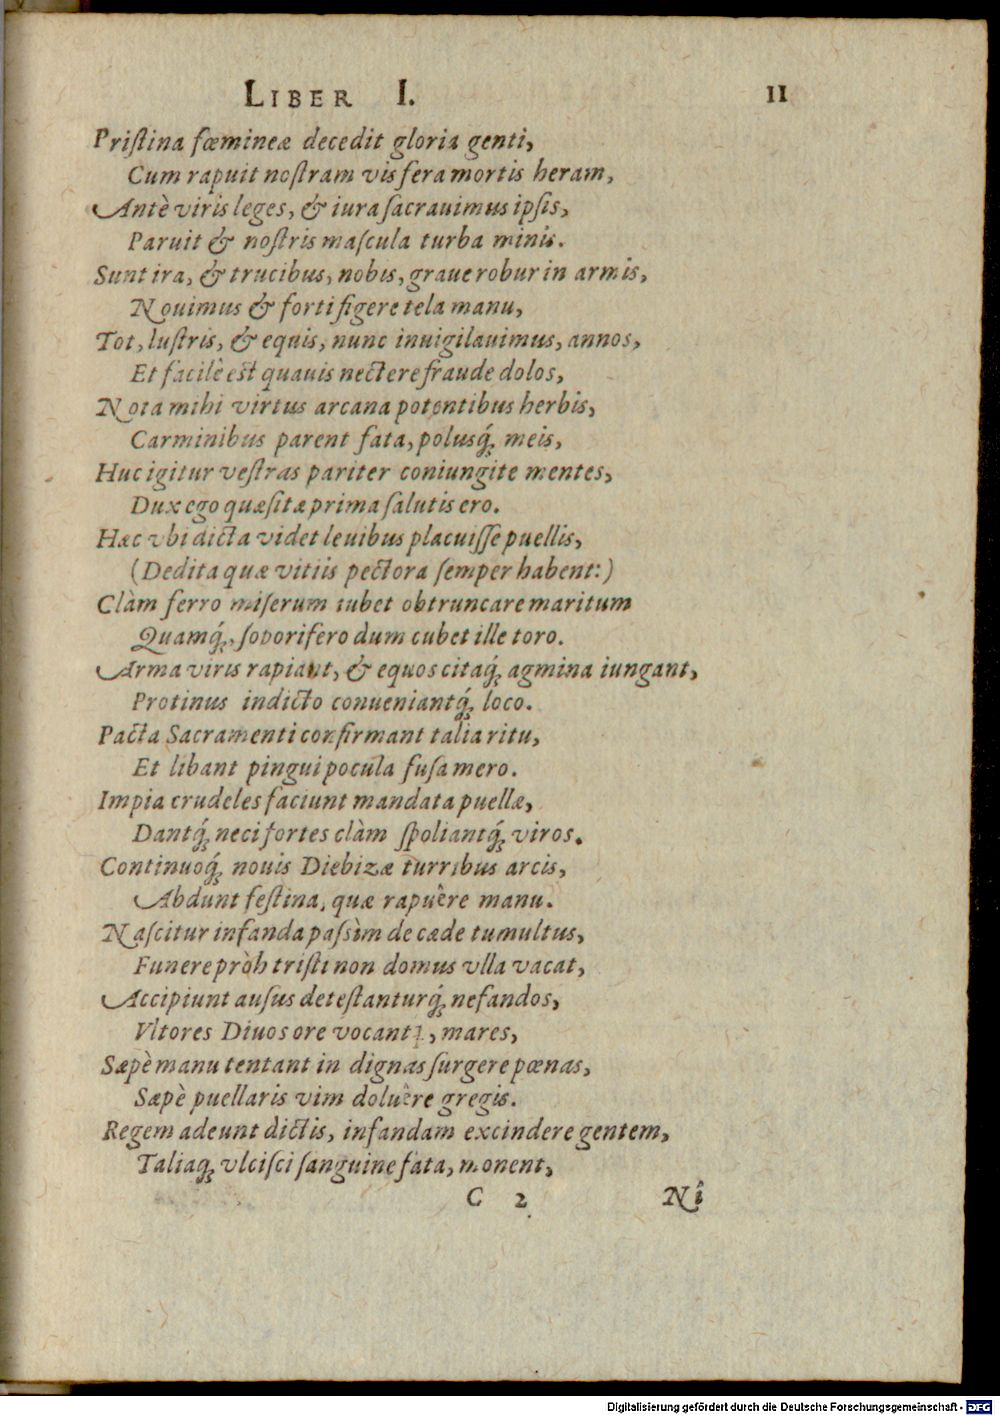 LIBER I. 11
Pristina fœmineæ decedit gloria genti,
Cum rapuit nostram vis fera mortis heram,
Antè viris leges, & iura sacrauimus ipsis,
Paruit & nostris mascula turba minis.
Sunt ira, & trucibus, nobis, graue robur in armis,
Nouimus & forti figere tela manu,
Tot, lustris, & equis, nunc inuigilauimus, annos,
Et facilè est quauis nectere fraude dolos,
Nota mihi virtus arcana potentibus herbis,
Carminibus parent fata, polusq́; meis,
Huc igitur vestras pariter coniungite mentes,
Dux ego quæsitæ prima salutis ero.
Hæc vbi dicta videt leuibus placuisse puellis,
(Dedita quæ vitiis pectora semper habent:)
Clàm ferro miserum iubet obtruncare maritum
Quamq́;, soporifero dum cubet ille toro.
Arma viris rapiant, & equos citaq́; agmina iungant,
Protinus indicto conueniantq́; loco.
Pacta Sacramenti confirmant talia ritu,
Et libant pingui pocula fusa mero.
Impia crudeles faciunt mandata puellæ,
Dantq́; neci fortes clàm spoliantq́; viros.
Continuoq́; nouis Diebizæ turribus arcis,
Abdunt festina, quæ rapuêre manu.
Nascitur infanda passìm de cæde tumultus,
Funere pròh tristi non domus vlla vacat,
Accipiunt ausus detestanturq́; nefandos,
Vltores Diuos ore vocant, mares,
Sæpè manu tentant in dignas surgere pœnas,
Sæpè puellaris vim doluêre gregis.
Regem adeunt dictis, infandam excindere gentem,
Taliaq; vlcisci sanguine fata, monent,
C 2 Ni
Digitalisierung gefördert durch die Deutsche Forschungsgemeinschaft - DFG